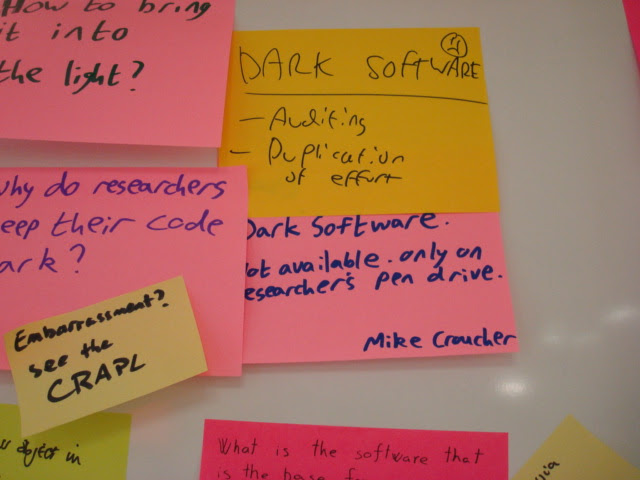 How to bring
it into
the light?
DARK SOFTWARE
- Auditing
- Duplication
of effort
Why do researchers
keep their code
dark?
Dark Software.
Not available. only on
researcher's pen drive.
Mike Croucher
Embarrassment?
see the
CRAPL
object in
What is the software that
is the base for